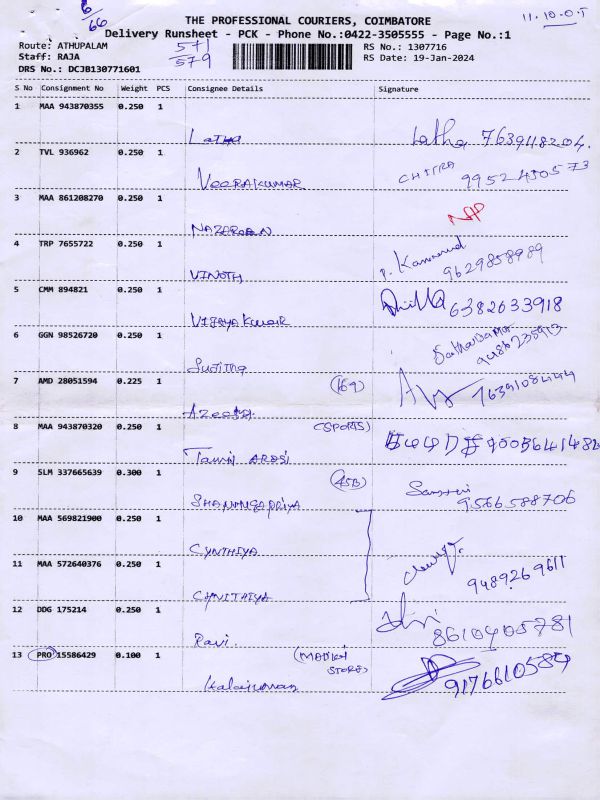 6/66
THE PROFESSIONAL COURIERS, COIMBATORE
11.10.0.T
Delivery Runsheet - PCK - Phone No.:0422-3505555 - Page No.:1
Route: ATHUPALAM
571/579
RS No.: 1307716
Staff: RAJA
RS Date: 19-Jan-2024
DRS No.: DCJB130771601
S No Consignment No Weight PCS Consignee Details Signature
1 MAA 943870355 0.250 1
Latha Latha 7639118204.
2 TVL 936962 0.250 1
VEERAKUMAR CHITRA 9952450573
3 MAA 861208270 0.250 1
4 TRP 7655722 0.250 1
VINOTH 9629858989
5 CMM 894821 0.250 1
VIJAYAKUMAR 6382633918
6 GGN 98526720 0.250 1
Sujitha
7 AMD 28051594 0.225 1 (169)
7639108444
8 MAA 943870320 0.250 1 (SPORTS)
Tamil ARASI
9 SLM 337665639 0.300 1 (45B)
SHANMUGAPRIYA 9566588706
10 MAA 569821900 0.250 1
CYNTHIYA
11 MAA 572640376 0.250 1
CYNITHIYA 9489269611
12 DDG 175214 0.250 1
Ravi. 8610405781
13 PRO 15586429 0.100 1 STORE)
9176610584